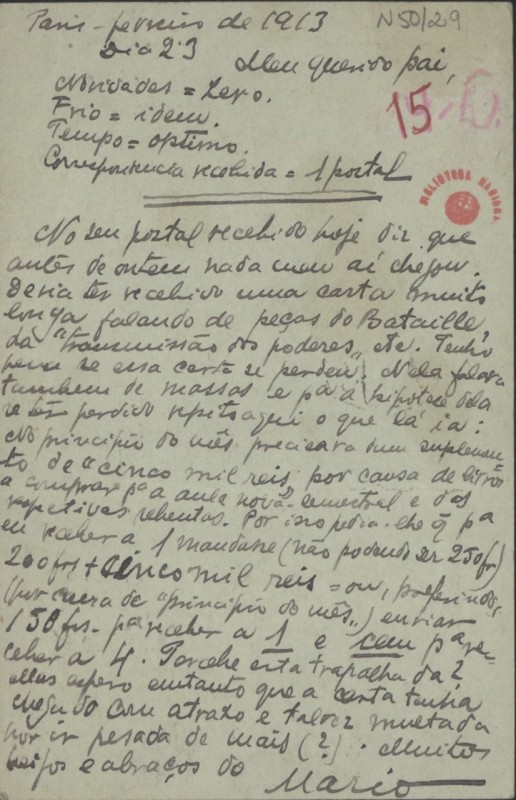 Paris - fevereiro de 1913
N50/29
Dia 23
Meu querido pai,
Novidades = Zero.
Frio = idem.
15
Tempo = optimo.
Correspondencia recebida = 1 postal
BIBLIOTECA NACIONAL
No seu postal recebido hoje diz que
antes de ontem nada meu aí chegou.
Devia ter recebido uma carta muito
longa falando de peças do Bataille,
da "transmissão dos poderes", etc. Tenho
pena se essa carta se perdeu. Nela falava
tambem de massas e pa a hipotese dela
se ter perdido repito aqui o que lá ia:
No principio do mês precisava dum suplemen-
to de "cinco mil reis" por causa de livros
a comprar pa a aula nova semestral e das
respetivas sebentas. Por isso pedia-lhe q pa
eu receber a 1 mandasse (não podendo ser 250 fr)
200 frs + cinco mil reis = ou, preferindo,
(por cera de "principio do mês") enviar
150 frs - pa receber a 1 e cem pa re-
ceber a 4. Percebe esta trapalhada?
Mas espero emtanto que a carta tenha
chegado com atrazo e talvez multada
por ir pesada de mais (?). Muitos
beijos e abraços do
Mario